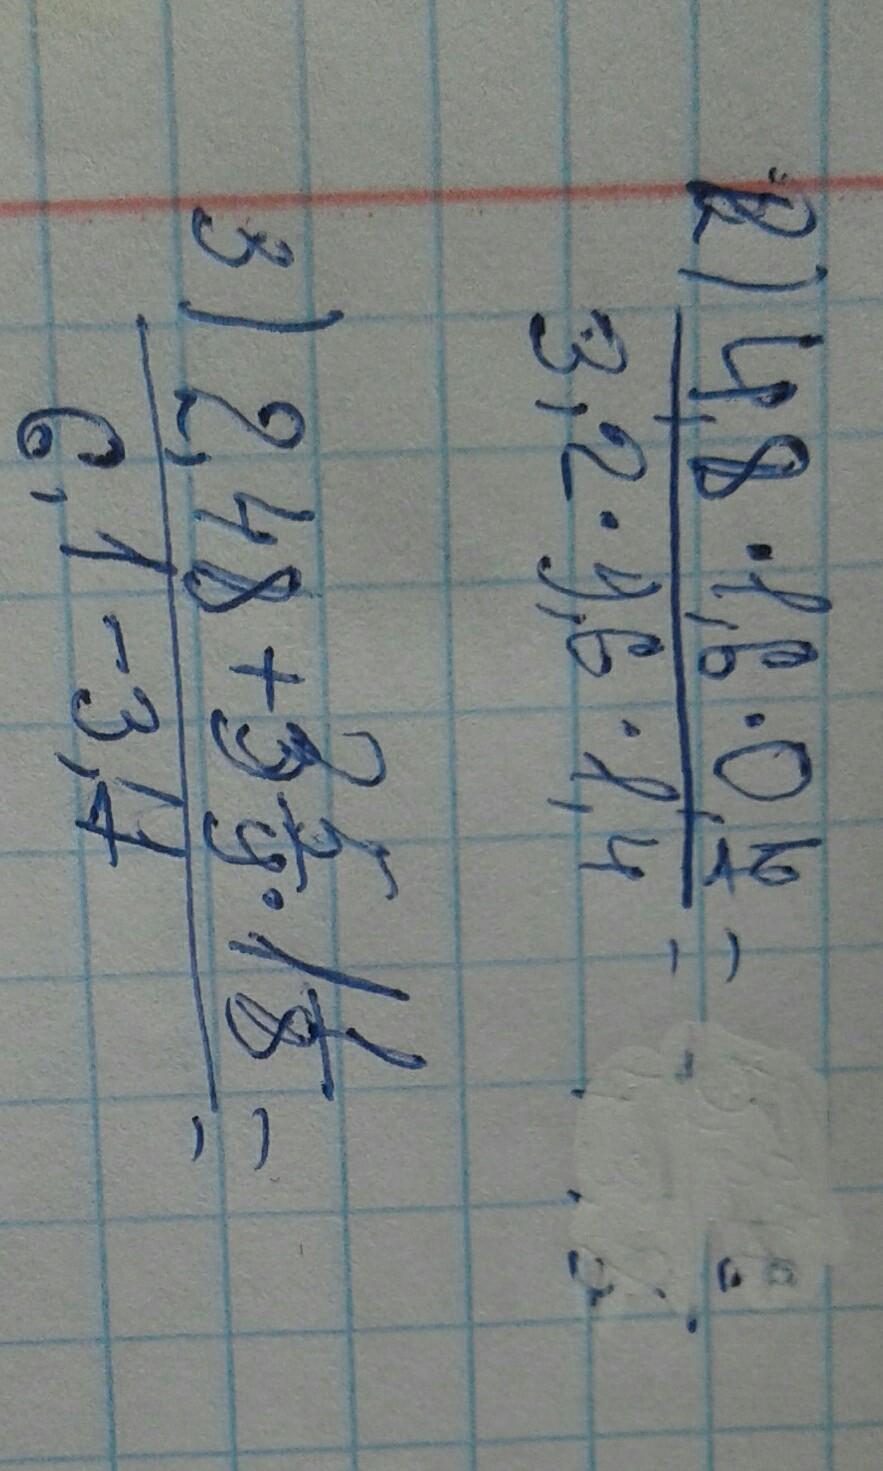 2) 4,8 · 1,6 · 0,7 =
3,2 · 9,6 · 1,4 =
3) 2,48 + 3 2/9 · 1 1/8 =
6,1 - 3,7 =